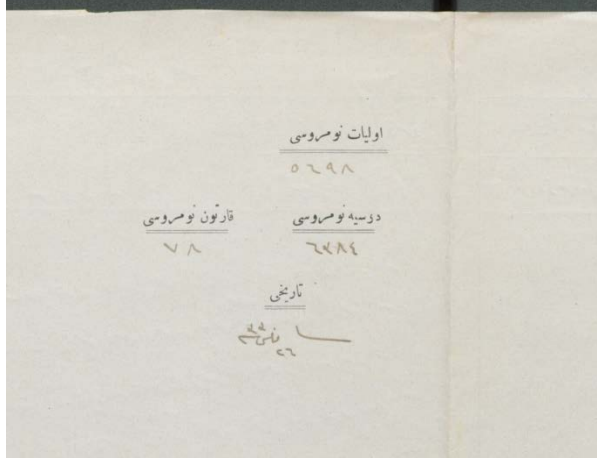 اولیات نومروسی
٥٦٩٨
دوسیه نومروسی قارتون نومروسی
٦٣٨٤ ٧٨
تاریخی
٢٦